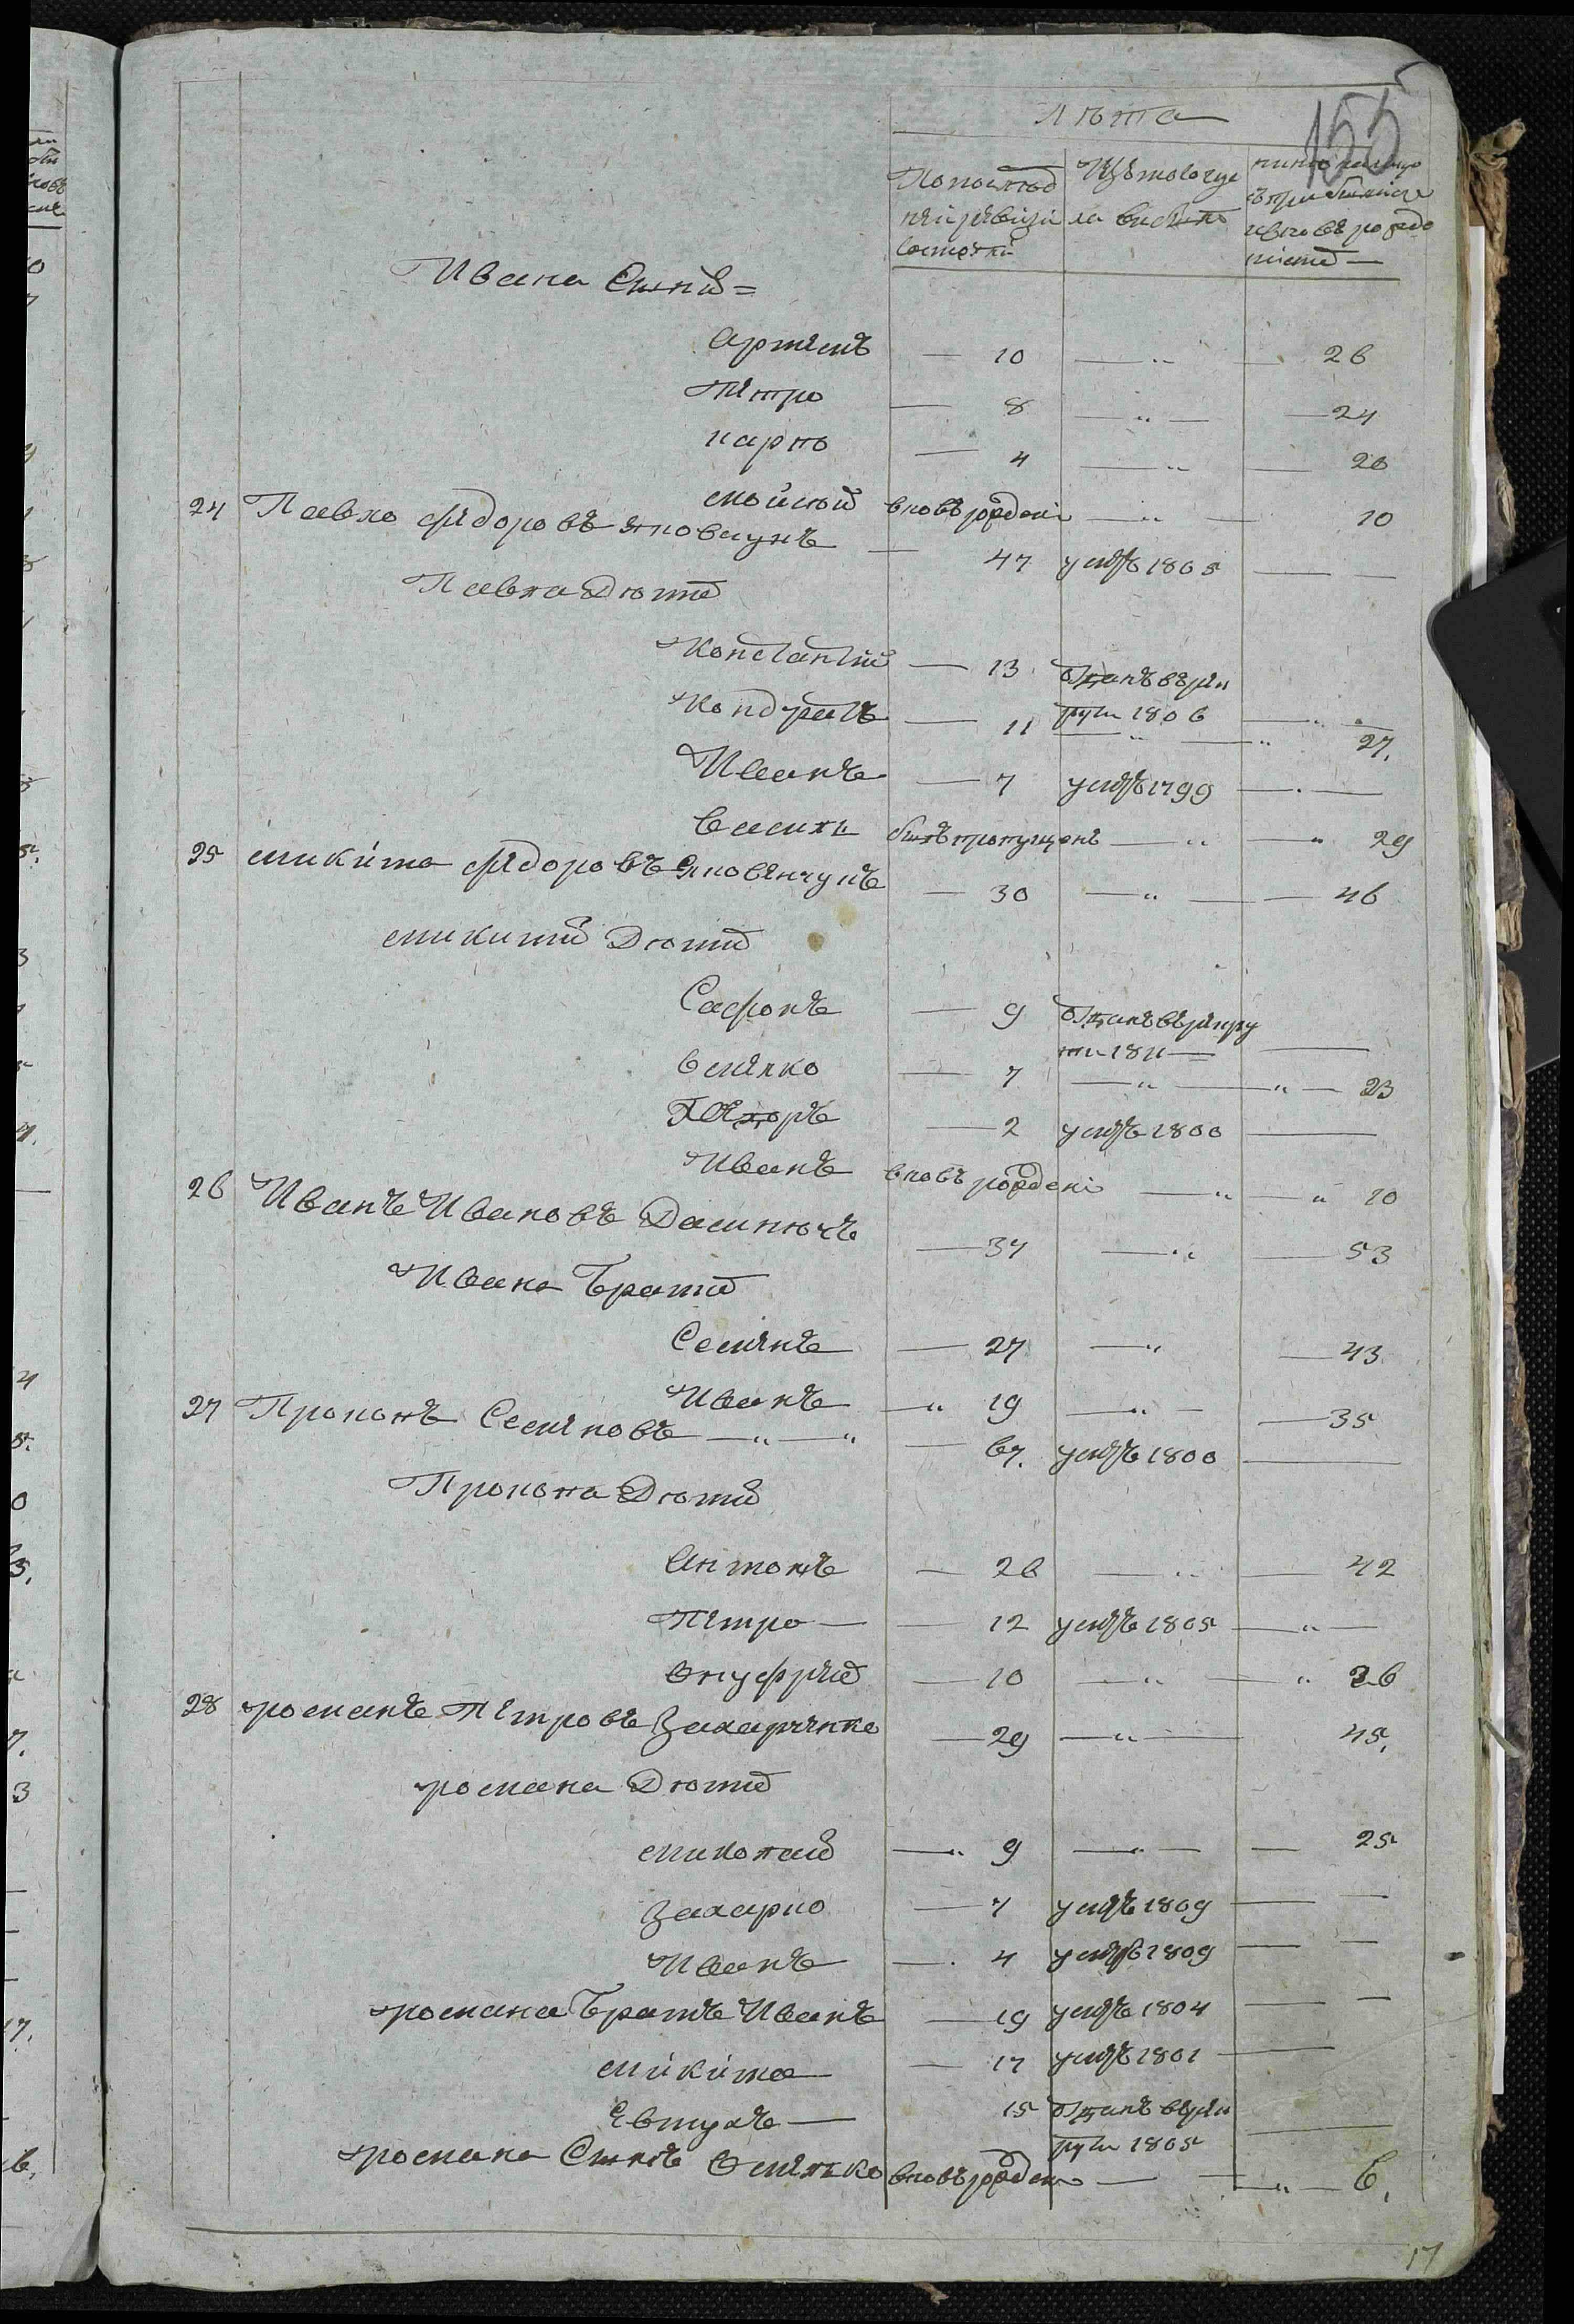 155
лѣта
По послѣд ней ревизіи состояли
Изъ того числа выбыло
ныне налицо съ прибылыми и вновь рожденными
Ивана Сыны =
Артемъ — 10 — „ — 26
Петро — 8 — „ — 24
Карпо — 4 — „ — 20
Моисей вновь рожденъ — „ — 10
24 Павло Федоровъ Яковчукъ — 47 умре 1805 — —
Павла Дѣти
Константій — 13 отданъ въ рек
рути 1806 — „ —
Кондратъ — 11 — „ — „ 27.
Иванъ — 7 умре 1799 — . —
Василь былъ пропущенъ — „ — „ 29
25 Микита Федоровъ Яковенчукъ — 30 — „ — 46
Микиты Дѣти
Сафонъ — 9 отданъ въ рекру
ти 1811 — —
Омелко — 7 — „ — „ — 23
Федоръ — 2 умре 1800 —
Иванъ вновь рожденъ — „ — „ 10
26 Иванъ Ивановъ Даснючъ — 37 — „ — 53
Ивана Браты
Семенъ — 27 — „ — 43
Иванъ — „ 19 — „ — 35
27 Прокопъ Семеновъ — „ — „ — 67. умре 1800 —
Прокопа Дѣти
Антонъ — 26 — „ — 42
Петро — 12 умре 1805 — „ —
Онуфрей — 10 — „ — „ 26
28 Романъ Петровъ Захарченко — 29 — „ — 45.
Романа Дѣти
Миколай — „ 9 — „ — 25
Захарко — 7 умре 1809 — —
Иванъ — . 4 умре 1809 — —
Романа Братъ Иванъ — 19 умре 1804 — —
Микита — 17 умре 1801 —
Евтухъ — 15 отданъ въ рек
рути 1805 —
Романа Сынъ Омелько вновь рожденъ — — „ — 6.
17